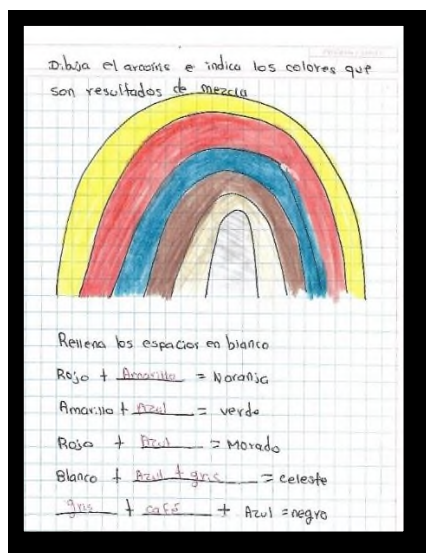 Dibuja el arcoíris e indica los colores que
son resultados de mezcla
Rellena los espacios en blanco
Rojo + Amarillo = Naranja
Amarillo + Azul = verde
Rojo + Azul = Morado
Blanco + Azul + gris = celeste
gris + café + Azul = negro